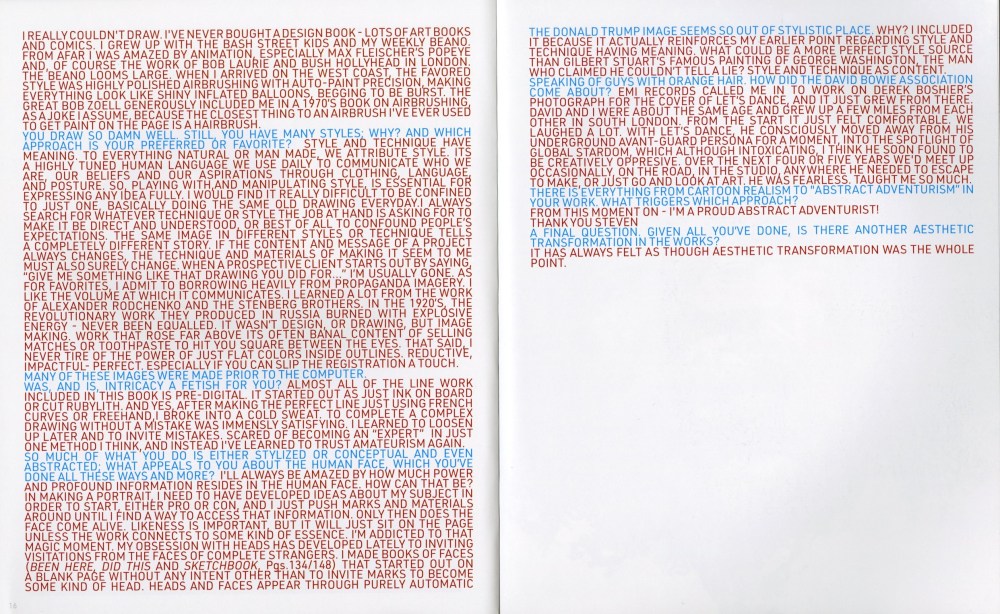 I REALLY COULDN'T DRAW. I'VE NEVER BOUGHT A DESIGN BOOK - LOTS OF ART BOOKS
AND COMICS. I GREW UP WITH THE BASH STREET KIDS AND MY WEEKLY BEANO.
FROM AFAR I WAS AMAZED BY ANIMATION, ESPECIALLY MAX FLEISCHER'S POPEYE
AND, OF COURSE THE WORK OF BOB LAURIE AND BUSH HOLLYHEAD IN LONDON.
THE BEANO LOOMS LARGE. WHEN I ARRIVED ON THE WEST COAST, THE FAVORED
STYLE WAS HIGHLY POLISHED AIRBRUSHING WITH AUTO-PAINT PRECISION, MAKING
EVERYTHING LOOK LIKE SHINY INFLATED BALLOONS, BEGGING TO BE BURST. THE
GREAT BOB ZOELL GENEROUSLY INCLUDED ME IN A 1970'S BOOK ON AIRBRUSHING,
AS A JOKE I ASSUME, BECAUSE THE CLOSEST THING TO AN AIRBRUSH I'VE EVER USED
TO GET PAINT ON THE PAGE IS A HAIRBRUSH.
YOU DRAW SO DAMN WELL. STILL, YOU HAVE MANY STYLES; WHY? AND WHICH
APPROACH IS YOUR PREFERRED OR FAVORITE? STYLE AND TECHNIQUE HAVE
MEANING. TO EVERYTHING NATURAL OR MAN MADE, WE ATTRIBUTE STYLE. IT'S
A HIGHLY TUNED HUMAN LANGUAGE WE USE DAILY TO COMMUNICATE WHO WE
ARE, OUR BELIEFS AND OUR ASPIRATIONS THROUGH CLOTHING, LANGUAGE,
AND POSTURE. SO, PLAYING WITH,AND MANIPULATING STYLE, IS ESSENTIAL FOR
EXPRESSING ANY IDEA FULLY. I WOULD FIND IT REALLY DIFFICULT TO BE CONFINED
TO JUST ONE, BASICALLY DOING THE SAME OLD DRAWING EVERYDAY.I ALWAYS
SEARCH FOR WHATEVER TECHNIQUE OR STYLE THE JOB AT HAND IS ASKING FOR TO
MAKE IT BE DIRECT AND UNDERSTOOD, OR BEST OF ALL TO CONFOUND PEOPLE'S
EXPECTATIONS. THE SAME IMAGE IN DIFFERENT STYLES OR TECHNIQUE TELLS
A COMPLETELY DIFFERENT STORY. IF THE CONTENT AND MESSAGE OF A PROJECT
ALWAYS CHANGES, THE TECHNIQUE AND MATERIALS OF MAKING IT SEEM TO ME
MUST ALSO SURELY CHANGE. WHEN A PROSPECTIVE CLIENT STARTS OUT BY SAYING,
"GIVE ME SOMETHING LIKE THAT DRAWING YOU DID FOR..." I'M USUALLY GONE. AS
FOR FAVORITES, I ADMIT TO BORROWING HEAVILY FROM PROPAGANDA IMAGERY. I
LIKE THE VOLUME AT WHICH IT COMMUNICATES. I LEARNED A LOT FROM THE WORK
OF ALEXANDER RODCHENKO AND THE STENBERG BROTHERS. IN THE 1920'S, THE
REVOLUTIONARY WORK THEY PRODUCED IN RUSSIA BURNED WITH EXPLOSIVE
ENERGY - NEVER BEEN EQUALLED. IT WASN'T DESIGN, OR DRAWING, BUT IMAGE
MAKING. WORK THAT ROSE FAR ABOVE ITS OFTEN BANAL CONTENT OF SELLING
MATCHES OR TOOTHPASTE TO HIT YOU SQUARE BETWEEN THE EYES. THAT SAID, I
NEVER TIRE OF THE POWER OF JUST FLAT COLORS INSIDE OUTLINES. REDUCTIVE,
IMPACTFUL- PERFECT. ESPECIALLY IF YOU CAN SLIP THE REGISTRATION A TOUCH.
MANY OF THESE IMAGES WERE MADE PRIOR TO THE COMPUTER.
WAS, AND IS, INTRICACY A FETISH FOR YOU? ALMOST ALL OF THE LINE WORK
INCLUDED IN THIS BOOK IS PRE-DIGITAL. IT STARTED OUT AS JUST INK ON BOARD
OR CUT RUBYLITH. AND YES, AFTER MAKING THE PERFECT LINE JUST USING FRENCH
CURVES OR FREEHAND,I BROKE INTO A COLD SWEAT. TO COMPLETE A COMPLEX
DRAWING WITHOUT A MISTAKE WAS IMMENSLY SATISFYING. I LEARNED TO LOOSEN
UP LATER AND TO INVITE MISTAKES. SCARED OF BECOMING AN "EXPERT" IN JUST
ONE METHOD I THINK, AND INSTEAD I'VE LEARNED TO TRUST AMATEURISM AGAIN.
SO MUCH OF WHAT YOU DO IS EITHER STYLIZED OR CONCEPTUAL AND EVEN
ABSTRACTED; WHAT APPEALS TO YOU ABOUT THE HUMAN FACE, WHICH YOU'VE
DONE ALL THESE WAYS AND MORE? I'LL ALWAYS BE AMAZED BY HOW MUCH POWER
AND PROFOUND INFORMATION RESIDES IN THE HUMAN FACE. HOW CAN THAT BE?
IN MAKING A PORTRAIT, I NEED TO HAVE DEVELOPED IDEAS ABOUT MY SUBJECT IN
ORDER TO START, EITHER PRO OR CON, AND I JUST PUSH MARKS AND MATERIALS
AROUND UNTIL I FIND A WAY TO ACCESS THAT INFORMATION. ONLY THEN DOES THE
FACE COME ALIVE. LIKENESS IS IMPORTANT, BUT IT WILL JUST SIT ON THE PAGE
UNLESS THE WORK CONNECTS TO SOME KIND OF ESSENCE. I'M ADDICTED TO THAT
MAGIC MOMENT. MY OBSESSION WITH HEADS HAS DEVELOPED LATELY TO INVITING
VISITATIONS FROM THE FACES OF COMPLETE STRANGERS. I MADE BOOKS OF FACES
(BEEN HERE, DID THIS AND SKETCHBOOK, Pgs.134/148) THAT STARTED OUT ON
A BLANK PAGE WITHOUT ANY INTENT OTHER THAN TO INVITE MARKS TO BECOME
SOME KIND OF HEAD. HEADS AND FACES APPEAR THROUGH PURELY AUTOMATIC
THE DONALD TRUMP IMAGE SEEMS SO OUT OF STYLISTIC PLACE. WHY? I INCLUDED
IT BECAUSE IT ACTUALLY REINFORCES MY EARLIER POINT REGARDING STYLE AND
TECHNIQUE HAVING MEANING. WHAT COULD BE A MORE PERFECT STYLE SOURCE
THAN GILBERT STUART'S FAMOUS PAINTING OF GEORGE WASHINGTON, THE MAN
WHO CLAIMED HE COULDN'T TELL A LIE? STYLE AND TECHNIQUE AS CONTENT.
SPEAKING OF GUYS WITH ORANGE HAIR. HOW DID THE DAVID BOWIE ASSOCIATION
COME ABOUT? EMI RECORDS CALLED ME IN TO WORK ON DEREK BOSHIER'S
PHOTOGRAPH FOR THE COVER OF LET'S DANCE, AND IT JUST GREW FROM THERE.
DAVID AND I WERE ABOUT THE SAME AGE AND GREW UP A FEW MILES FROM EACH
OTHER IN SOUTH LONDON. FROM THE START IT JUST FELT COMFORTABLE. WE
LAUGHED A LOT. WITH LET'S DANCE, HE CONSCIOUSLY MOVED AWAY FROM HIS
UNDERGROUND AVANT-GUARD PERSONA FOR A MOMENT, INTO THE SPOTLIGHT OF
GLOBAL STARDOM, WHICH ALTHOUGH INTOXICATING, I THINK HE SOON FOUND TO
BE CREATIVELY OPPRESIVE. OVER THE NEXT FOUR OR FIVE YEARS WE'D MEET UP
OCCASIONALLY, ON THE ROAD, IN THE STUDIO, ANYWHERE HE NEEDED TO ESCAPE
TO MAKE, OR JUST GO AND LOOK AT ART. HE WAS FEARLESS. TAUGHT ME SO MUCH.
THERE IS EVERYTHING FROM CARTOON REALISM TO "ABSTRACT ADVENTURISM" IN
YOUR WORK. WHAT TRIGGERS WHICH APPROACH?
FROM THIS MOMENT ON - I'M A PROUD ABSTRACT ADVENTURIST!
THANK YOU STEVEN
A FINAL QUESTION. GIVEN ALL YOU'VE DONE, IS THERE ANOTHER AESTHETIC
TRANSFORMATION IN THE WORKS?
IT HAS ALWAYS FELT AS THOUGH AESTHETIC TRANSFORMATION WAS THE WHOLE
POINT.